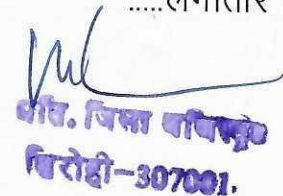 .....लगातार
अति. जिला मजिस्ट्रेट
सिरोही-307001.